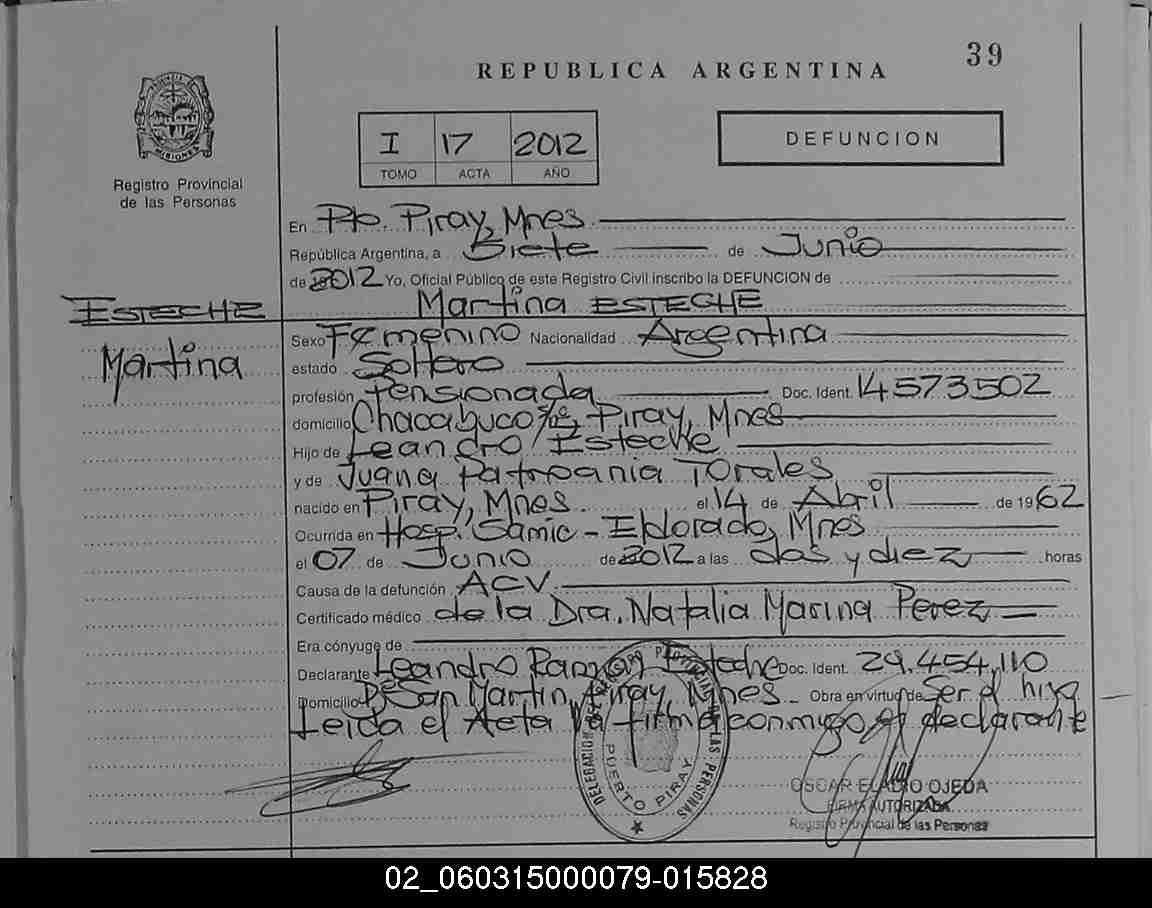 39
REPUBLICA ARGENTINA
MISIONES
Registro Provincial
de las Personas
I 17 2012
TOMO ACTA AÑO
DEFUNCION
En Pto. Piray, Mnes
República Argentina, a Siete de Junio
de 2012 Yo, Oficial Público de este Registro Civil inscribo la DEFUNCION de
Martina ESTECHE
ESTECHE
Martina
Sexo Femenino Nacionalidad Argentina
estado Soltero
profesión Pensionada Doc. Ident. 14573502
domicilio Chacabuco s/nº, Piray, Mnes
Hijo de Leandro Esteche
y de Juana Torales
nacido en Piray, Mnes. el 14 de Abril de 1962
Ocurrida en Hosp. Samic - Eldorado, Mnes
el 07 de Junio de 2012 a las dos y diez horas
Causa de la defunción ACV.
Certificado médico de la Dra. Natalia Marina Perez
Era cónyuge de
Declarante Leandro Ramon Esteche Doc. Ident. 29.454.110
Domicilio San Martin, Piray, Mnes. Obra en virtud de Ser el hijo
Leida el Acta la firma conmigo el declarante
DELEGACION DEL REGISTRO PROVINCIAL DE LAS PERSONAS
PUERTO PIRAY
OSCAR ELADIO OJEDA
FIRMA AUTORIZADA
Registro Provincial de las Personas
02_060315000079-015828